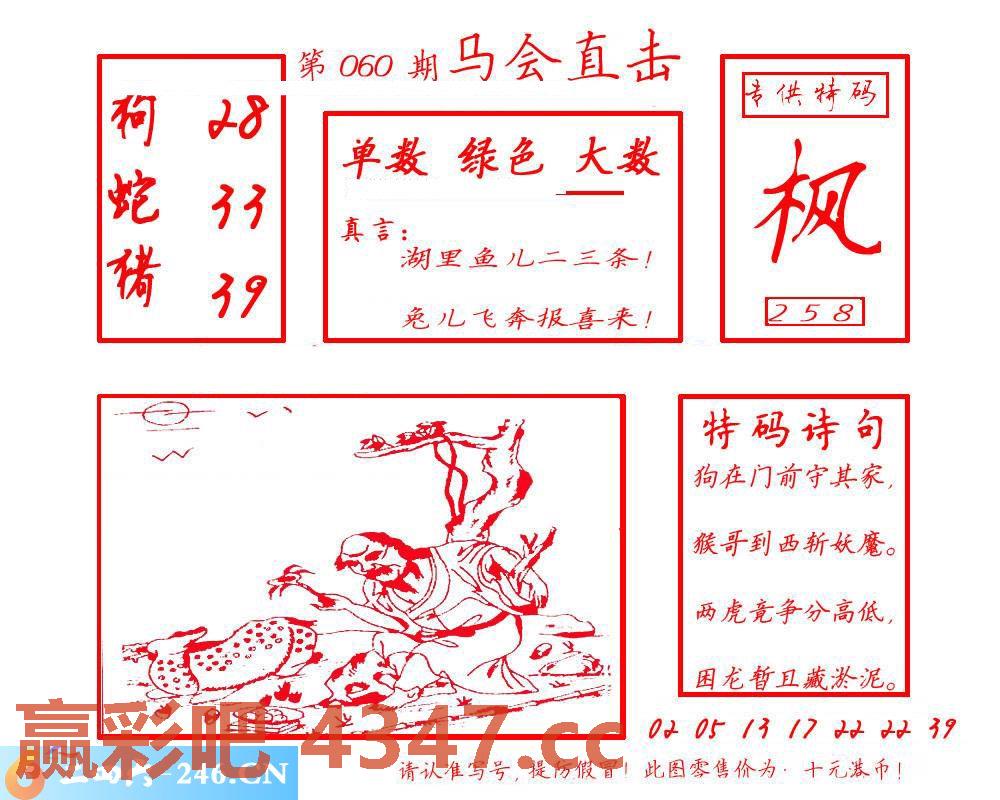 第 060 期 马会直击
狗 28
蛇 33
猪 39
单数 绿色 大数
真言：
湖里鱼儿二三条！
兔儿飞奔报喜来！
专供特码
枫
258
特码诗句
狗在门前守其家，
猴哥到西斩妖魔。
两虎竟争分高低，
困龙暂且藏淤泥。
02 05 13 17 22 22 39
赢彩吧 4347.cc
-246.CN
请认准写号，提防假冒！此图零售价为·十元港币！